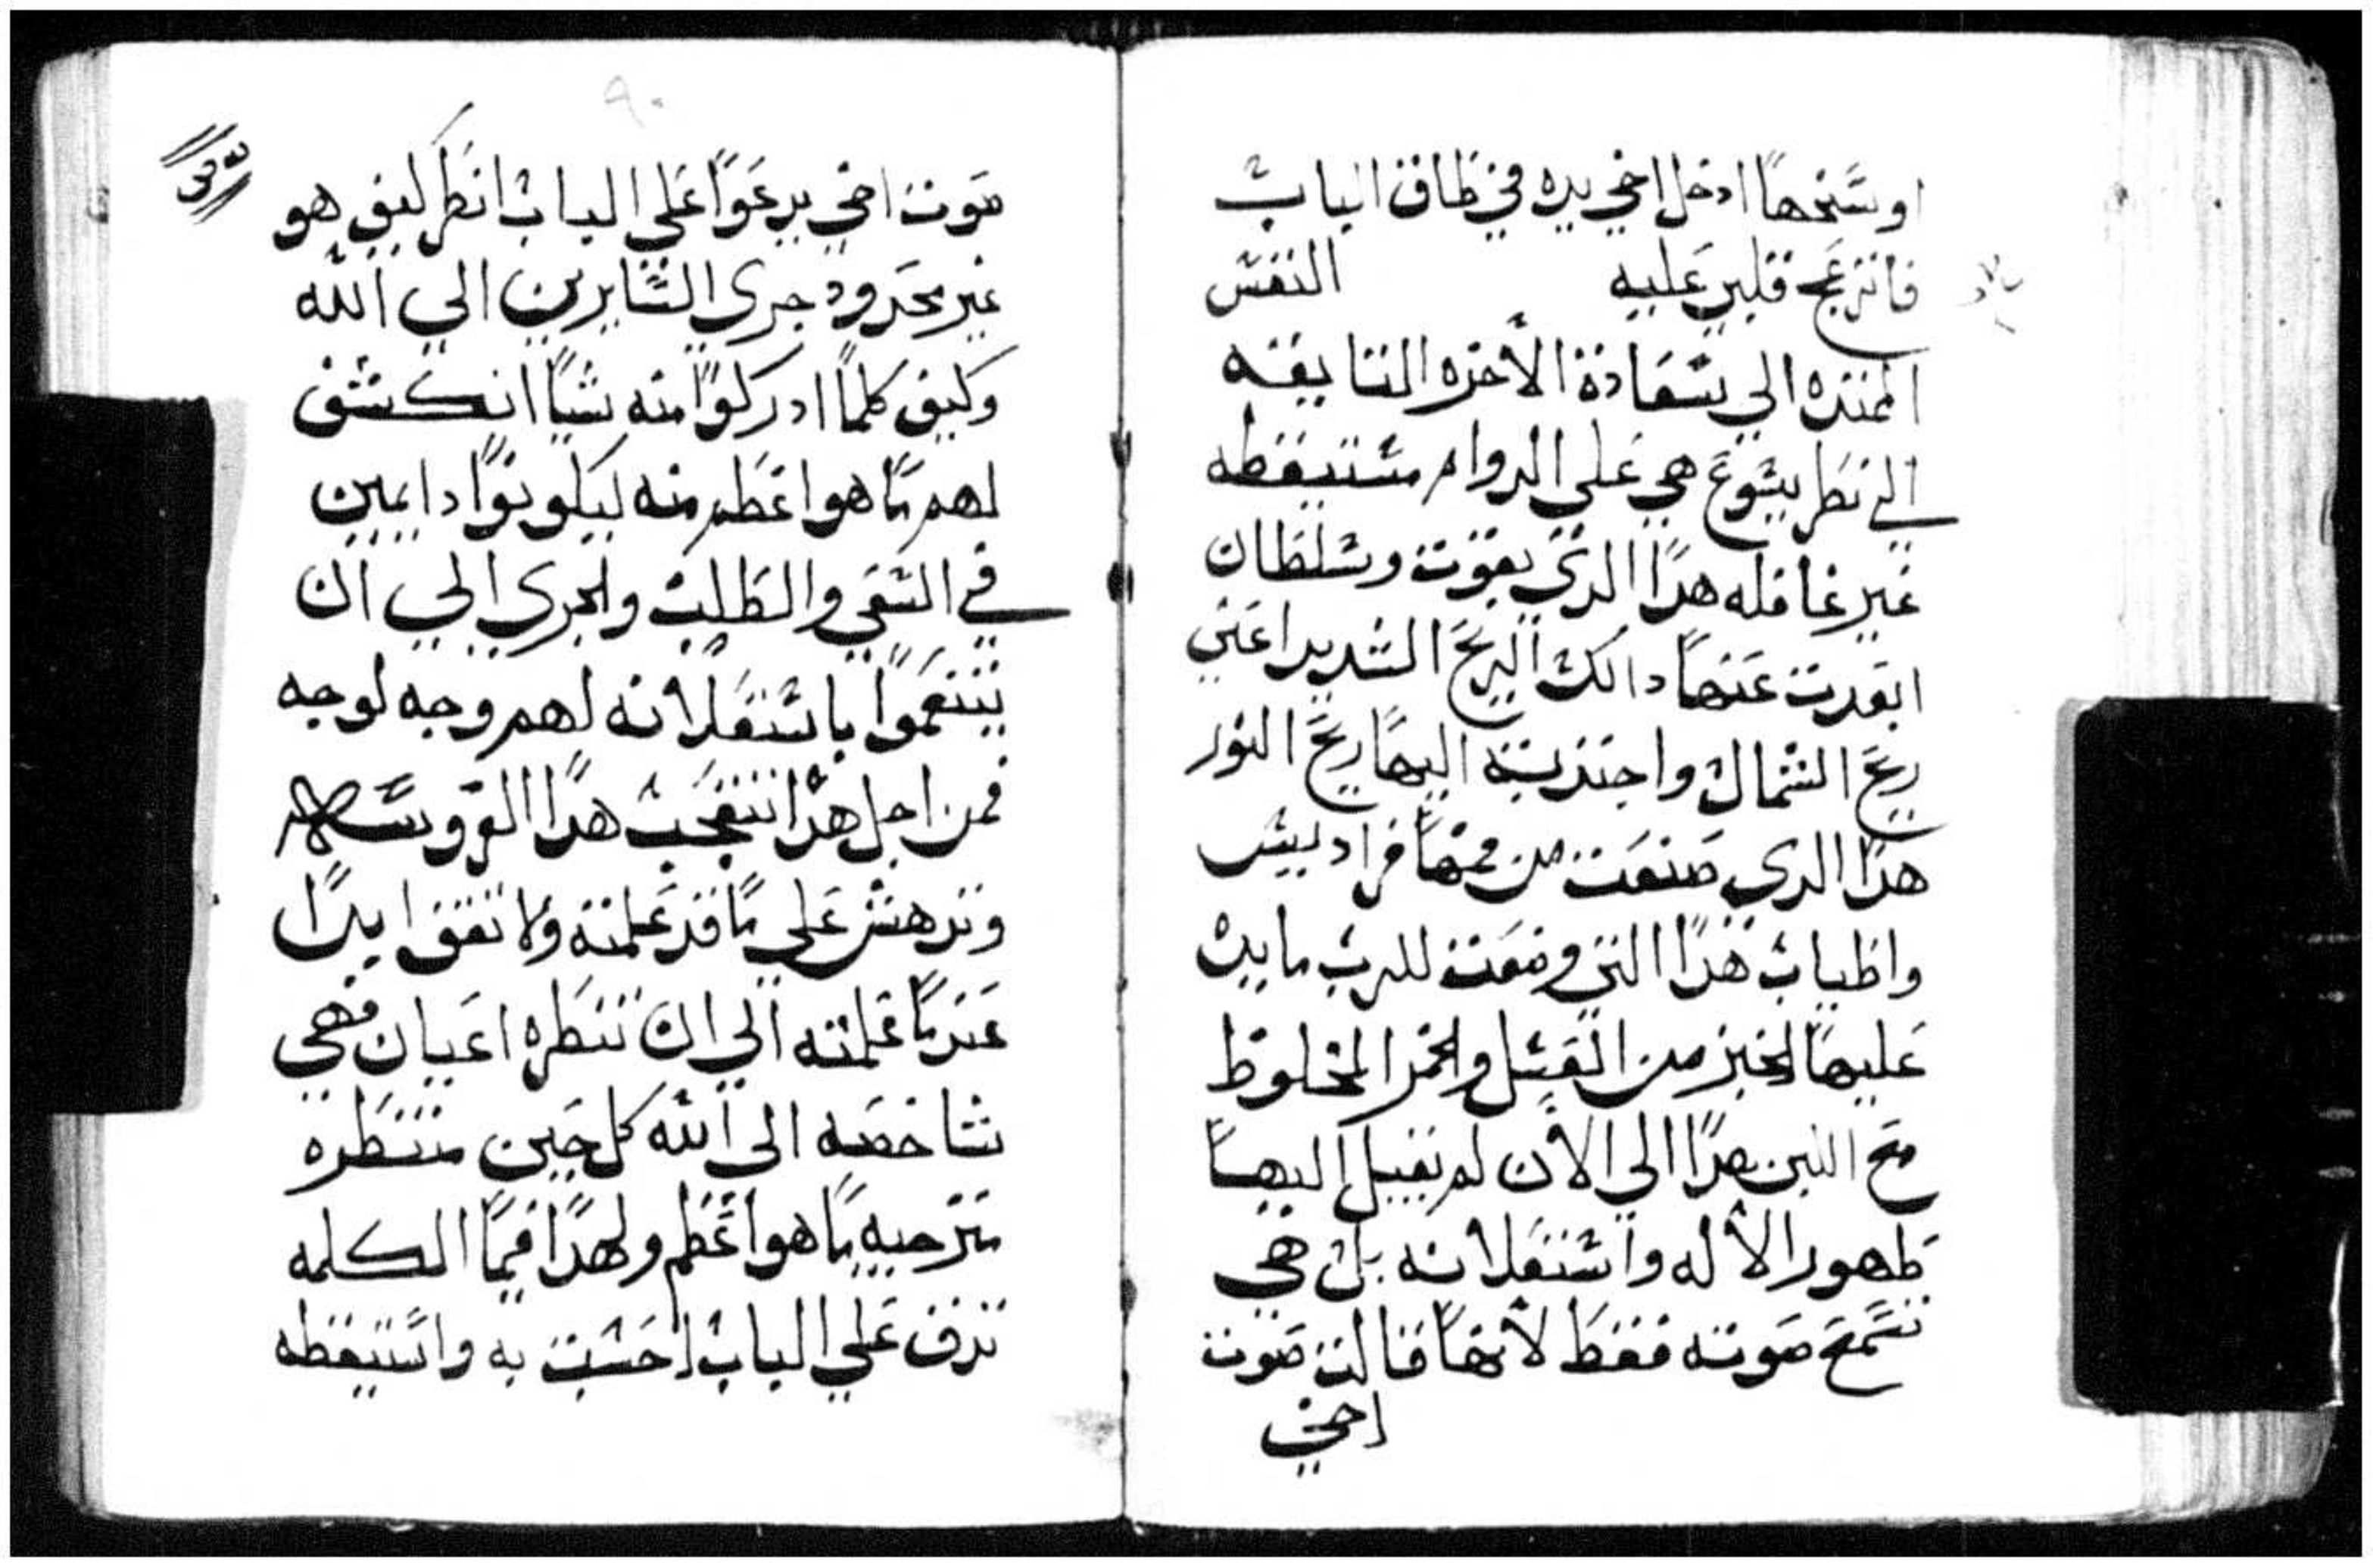 اوسخها ادخل اخي يده في طاق الباب
فانزعج قلبي عليه النفس
الممتده الي سعادة الأخره التايقه
الي نظر يشوع هي علي الدوام مستيقظه
غير غافله هدا الدي بقوت وسلطان
ابعدت عنها دالك الريح الشديد اعني
ريح الشمال واجتذبته اليها ريح النور
هدا الدي صنعت من فمها فراديس
واطياب هدا التي وضعت للرب مايده
عليها الخبز من العسل والخمر المخلوط
مع اللبن هدا الي الأن لم يقبل اليها
ظهور الأله واستعلانه بل هي
تسمع صوته فقط لأنها قالت صوت
اخي
٩٠
صوت اخي يدعوا علي الباب انظر كيف هو
غير محدود جري السايرين الي الله
وكيف كلما ادركوا منه شيا انكشف
لهم ما هو اعظم منه ليكونوا دايمين
في السعي والطلب والجري الي ان
يتنعموا باستعلانه لهم وجه لوجه
فمن اجل هدا تتعجب هدا العروسه
وتدهش علي ما قد علمته ولا تقف ابدا
عندما علمته الي ان تنظره اعيان فهي
شاخصه الي الله كل حين منتظره
مترجيه ما هو اعظم ولهدا فيما الكلمه
تدق علي الباب احست به واستيقظه